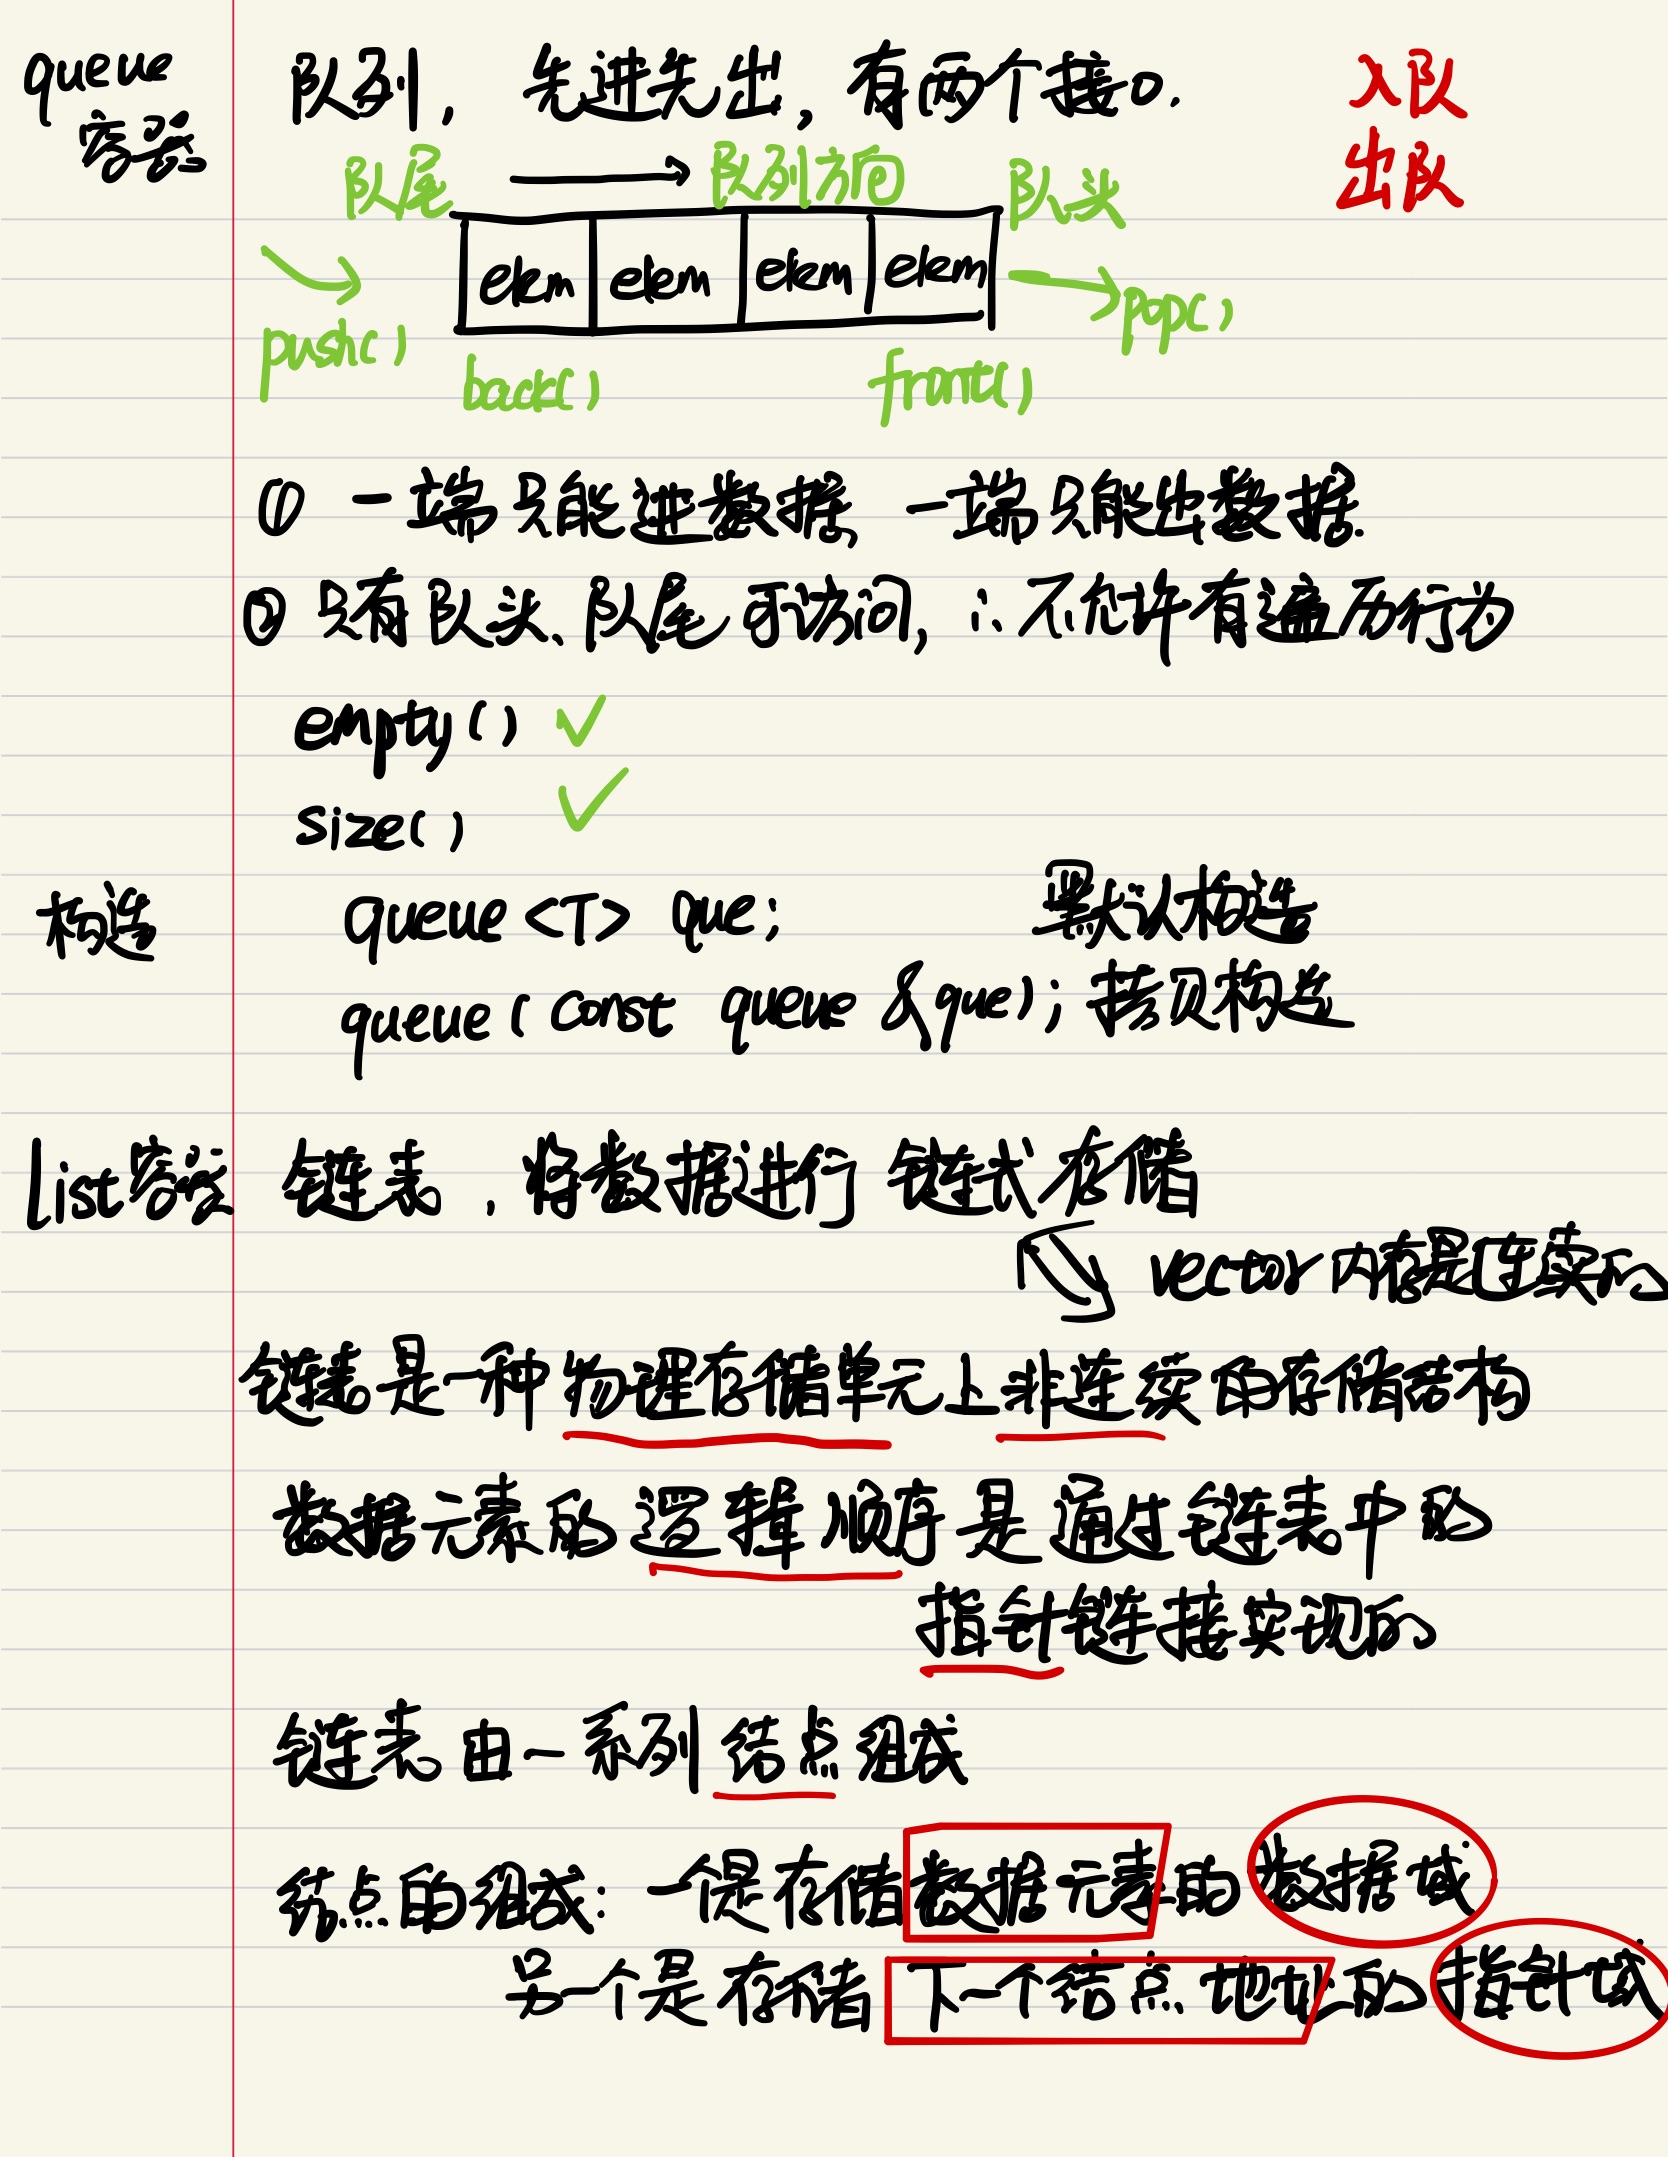 queue 队列, 先进先出, 有两个接口. 入队
容器 出队
队尾 队列方向 队头
elem elem elem elem
push() pop()
back() front()
① 一端只能进数据、一端只能出数据.
② 只有队头、队尾可访问, ∴不允许有遍历行为
empty() ✓
size() ✓
构造 queue <T> que; 默认构造
queue ( const queue &que); 拷贝构造
list容器 链表, 将数据进行链式存储
vector内存是连续的
链表是一种物理存储单元上非连续的存储结构
数据元素的逻辑顺序是通过链表中的
指针链接实现的
链表由一系列结点组成
结点的组成: 一个是存储数据元素的数据域
另一个是存储下一个结点地址的指针域